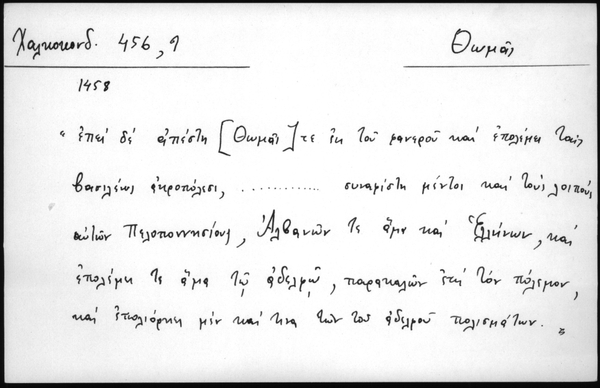 Χαλκοκονδ. 456, 9
Θωμᾶς
1458
" ἐπεὶ δὲ ἀπέστη [Θωμᾶς] τε ἐκ τοῦ φανεροῦ καὶ ἐπολέμει ταῖς
βασιλέως ἀκροπόλεσι, ............ συναφίστη μέντοι καὶ τοὺς λοιποὺς
αὐτῶν Πελοποννησίους, Ἀλβανῶν τε ἅμα καὶ Ἑλλήνων, καὶ
ἐπολέμει τε ἅμα τῷ ἀδελφῷ, παρακαλῶν ἐπὶ τὸν πόλεμον,
καὶ ἐπολιόρκει μὲν καὶ τινα τῶν τοῦ ἀδελφοῦ πολισμάτων. "